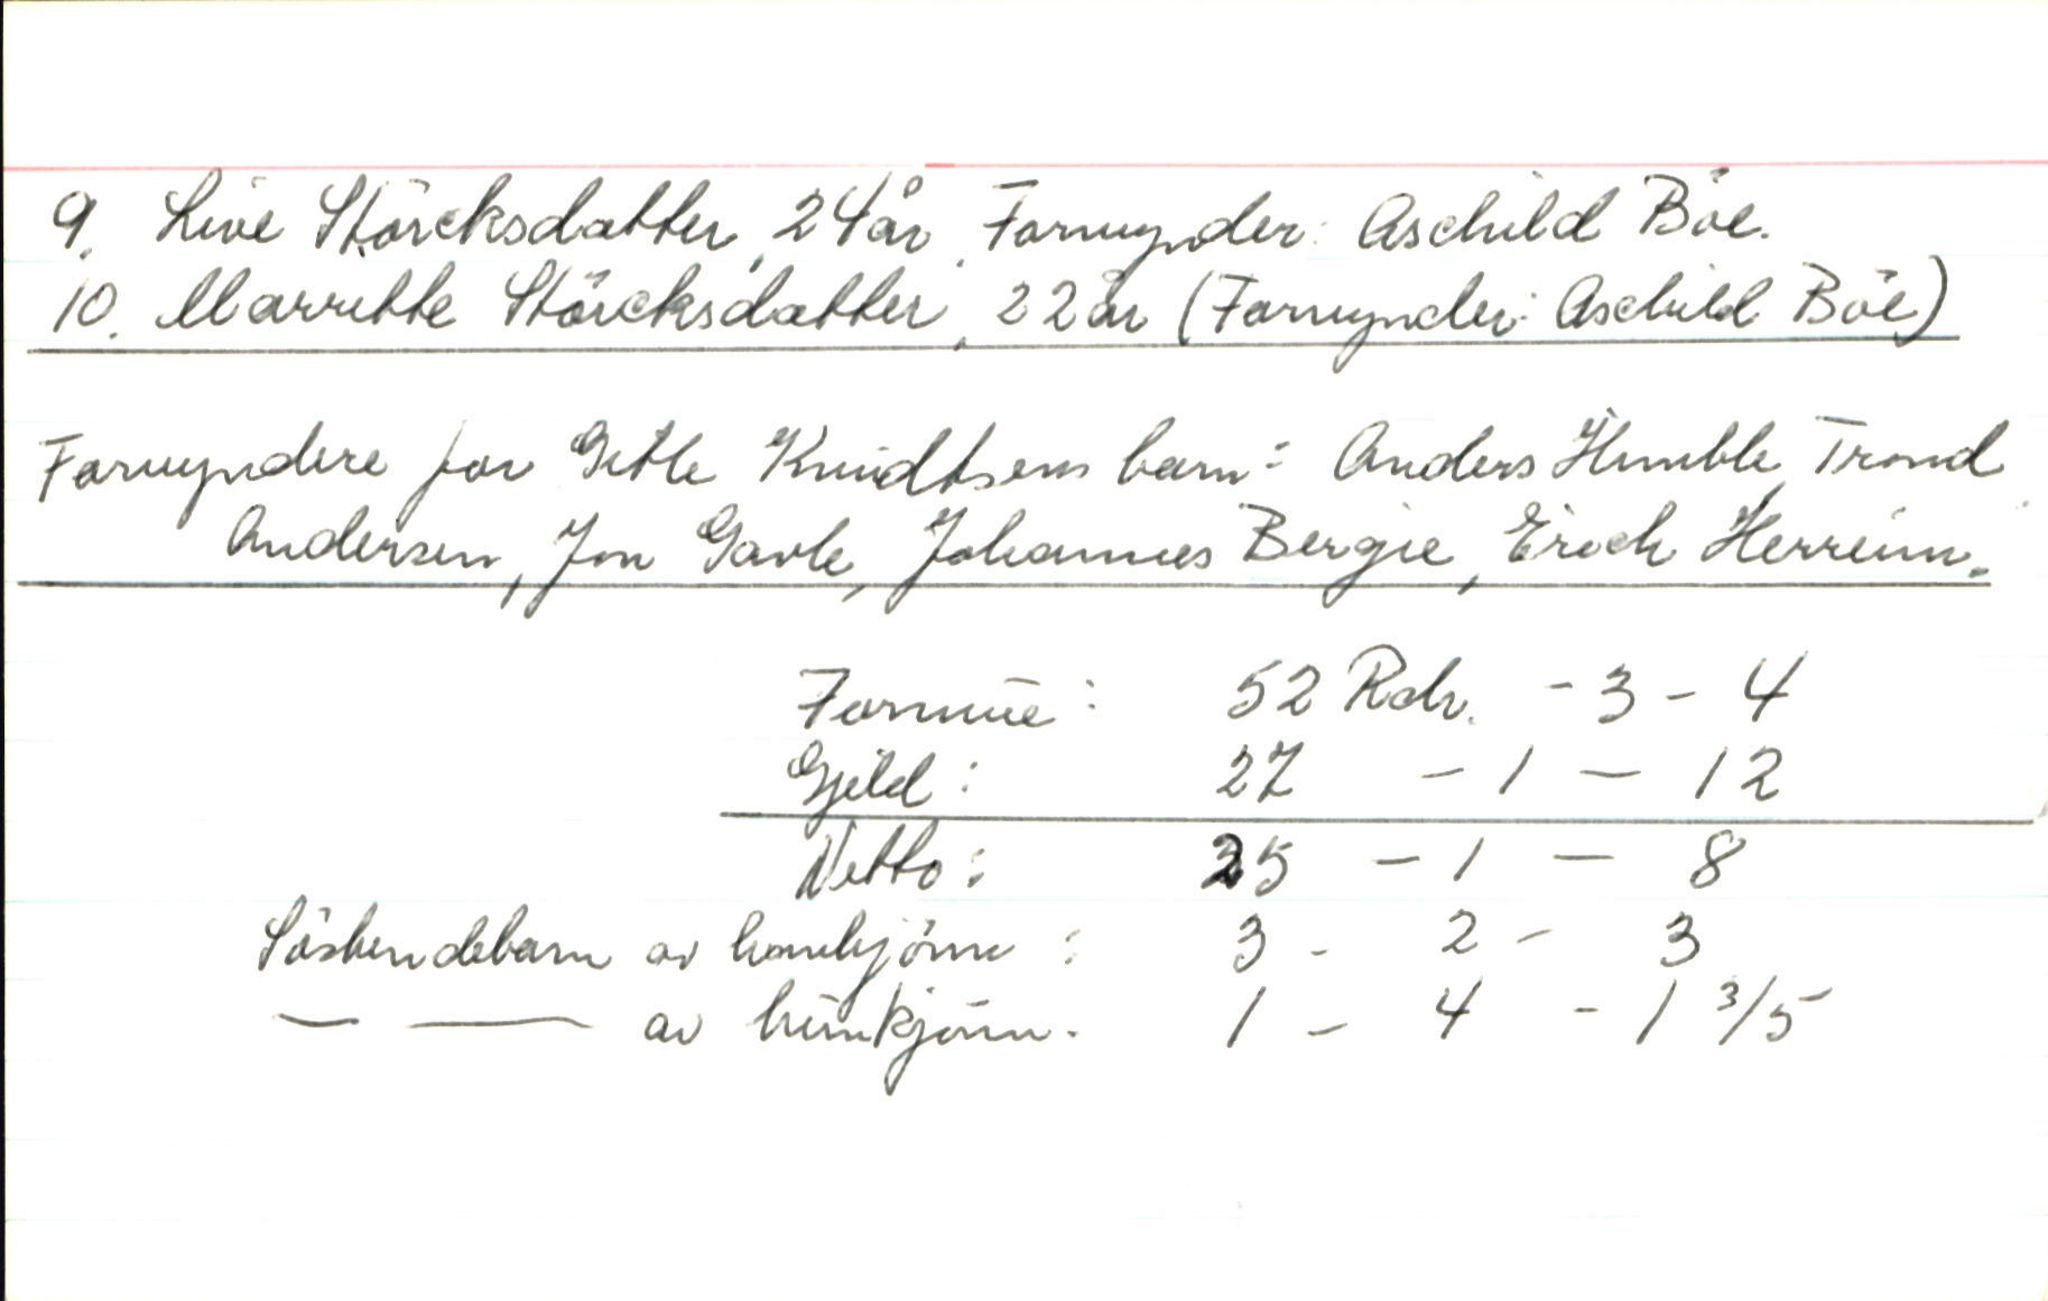 9. Live Störcksdatter, 24 år, Formynder: Aschild Böe.
10. Marrethe Störcksdatter, 22 år (Formynder: Aschild Böe)
Formyndere for Getle Knudtsens barn: Anders Humble, Trond
Andersen, Jon Garle, Johannes Bergie, Erich Herreim.
Formue: 52 Rdr. - 3 - 4
Gjeld: 27 - 1 - 12
Netto: 25 - 1 - 8
Söskendebarn av hankjönn: 3 - 2 - 3
— — av hunkjönn. 1 - 4 - 1 3/5